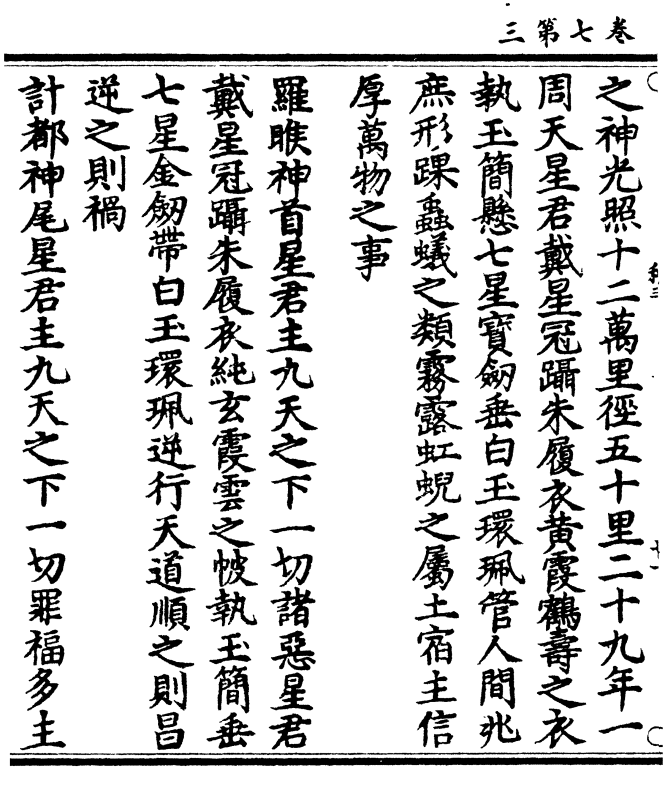 卷七第三
之神光照十二萬里徑五十里二十九年一
周天星君戴星冠躡朱履衣黄霞鶴壽之衣
執玉簡懸七星寶劒垂白玉環珮管人間兆
庶形踝蟲蟻之類霧露虹蜺之屬土宿主信
厚萬物之事
羅睺神首星君主九天之下一切諸惡星君
戴星冠躡朱履衣純玄霞雲之帔執玉簡垂
七星金劒帶白玉環珮逆行天道順之則昌
逆之則禍
計都神尾星君主九天之下一切罪福多主